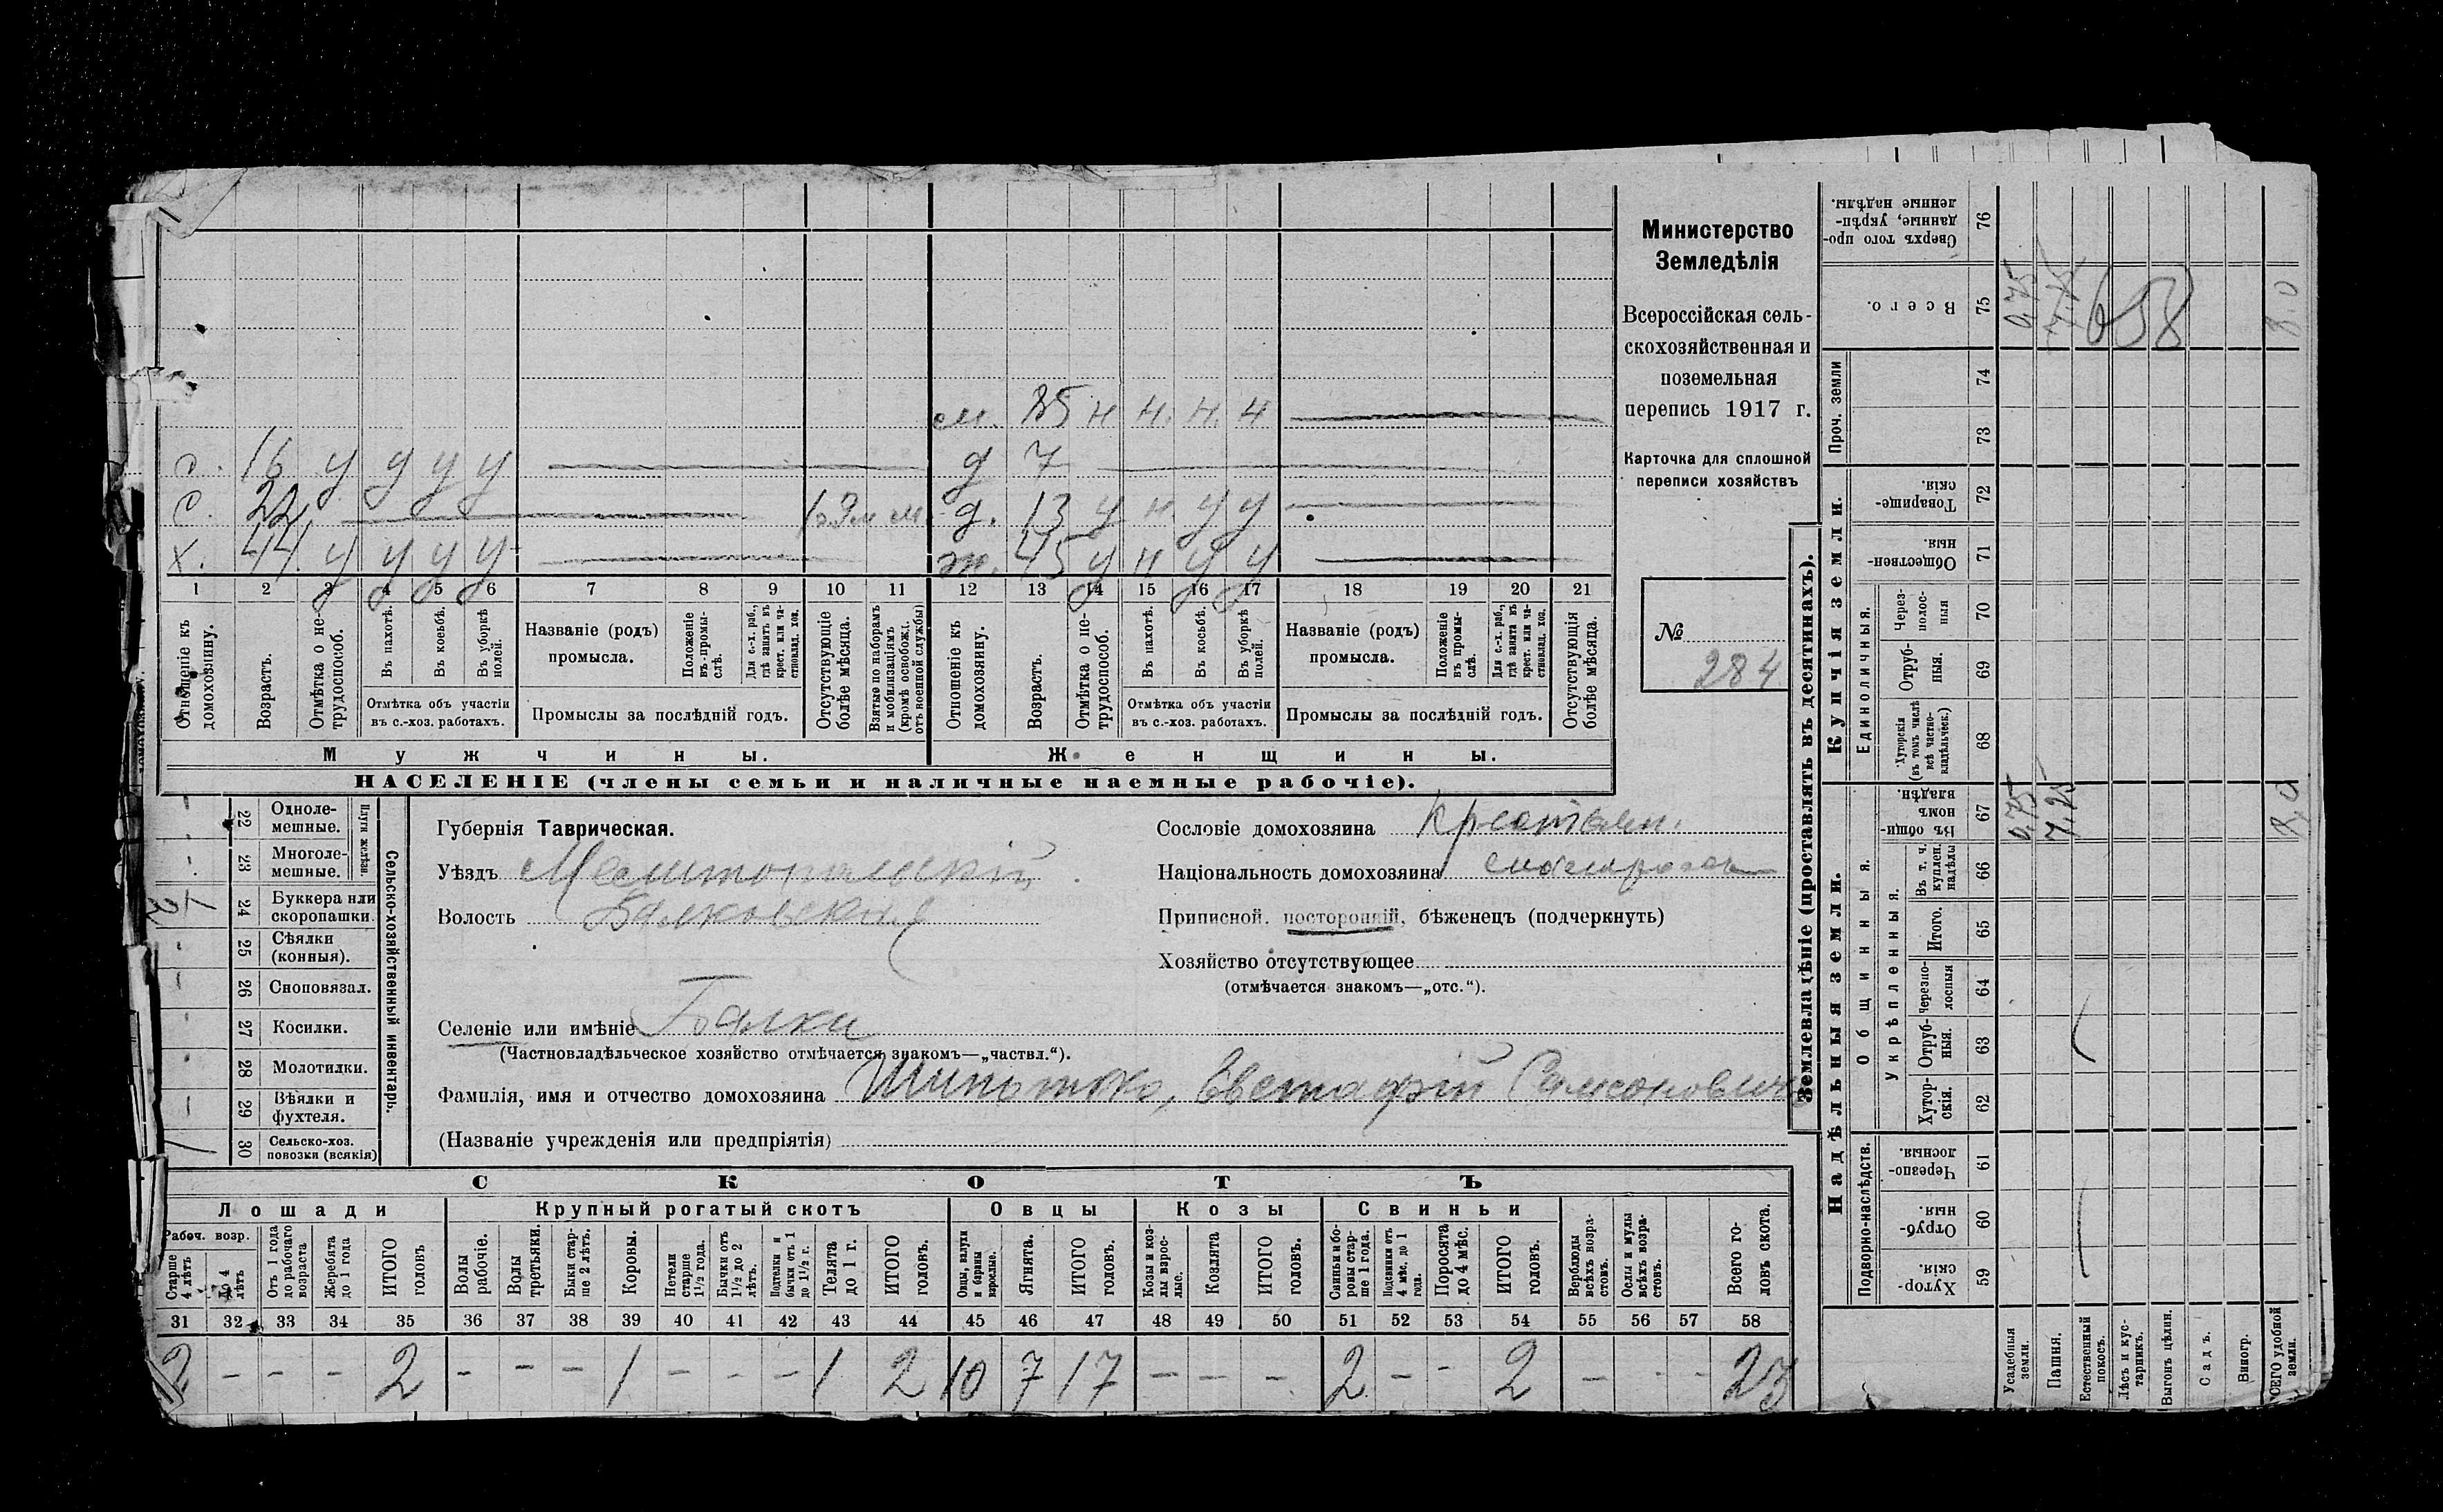 м. 85 н н. н. н
с. 16 у у у у
д 7
с. 22
д. 13 у н. у у
х. 44. у у у у
ж. 45 у н у у
1 2 3 4 5 6 7 8 9 10 11 12 13 14 15 16 17 18 19 20 21
Отношеніе къ домохозяину.
Возрастъ.
Отмѣтка о нетрудоспособ.
Въ пахотѣ.
Въ косьбѣ.
Въ уборкѣ полей.
Отмѣтка объ участіи
въ с.-хоз. работахъ.
Названіе (родъ)
промысла.
Положеніе въ промыслѣ.
Для с.-х. раб., гдѣ занятъ въ крест. или частновлад. хоз.
Промыслы за послѣдній годъ.
Отсутствующіе болѣе мѣсяца.
Взятые по наборамъ и мобилизаціямъ (кромѣ освобожд. отъ военной службы)
Отношеніе къ домохозяину.
Возрастъ.
Отмѣтка о нетрудоспособ.
Въ пахотѣ.
Въ косьбѣ.
Въ уборкѣ полей.
Отмѣтка объ участіи
въ с.-хоз. работахъ.
Названіе (родъ)
промысла.
Положеніе въ промыслѣ.
Для с.-х. раб., гдѣ занята въ крест. или частновлад. хоз.
Промыслы за послѣдній годъ.
Отсутствующія болѣе мѣсяца.
Мужчины.
Женщины.
НАСЕЛЕНІЕ (члены семьи и наличные наемные рабочіе).
Министерство
Земледѣлія
Всероссійская сель-
скохозяйственная и
поземельная
перепись 1917 г.
Карточка для сплошной
переписи хозяйствъ
№
284
22 Одноле-
мешные.
23 Многоле-
мешные.
Плуги желѣзн.
24 Буккера или
скоропашки.
25 Сѣялки
(конныя).
26 Сноповязал.
27 Косилки.
28 Молотилки.
29 Вѣялки и
фухтеля.
30 Сельско-хоз.
повозки (всякія)
1
Сельско-хозяйственный инвентарь.
Губернія Таврическая.
Уѣздъ Мелитопольскій
Волость Балковская
Селеніе или имѣніе Балки
(Частновладѣльческое хозяйство отмѣчается знакомъ—„частвл.“).
Фамилія, имя и отчество домохозяина Шипотко, Евстафій Самсоновичъ
(Названіе учрежденія или предпріятія)
Сословіе домохозяина Крестьян.
Національность домохозяина малоросс
Приписной, посторонній, бѣженецъ (подчеркнуть)
Хозяйство отсутствующее
(отмѣчается знакомъ—„отс.“).
СКОТЪ
Лошади
Крупный рогатый скотъ
Овцы
Козы
Свиньи
Рабоч. возр.
Старше 4 лѣтъ
До 4 лѣтъ
Отъ 1 года до рабочаго возраста
Жеребята до 1 года
ИТОГО головъ
Волы рабочіе.
Волы третьяки.
Быки старше 2 лѣтъ.
Коровы.
Нетели старше 1½ года.
Бычки отъ 1½ до 2 лѣтъ.
Подтелки и бычки отъ 1 до 1½ г.
Телята до 1 г.
ИТОГО головъ.
Овцы, валухи и бараны взрослые.
Ягнята.
ИТОГО головъ.
Козы и козлы взрослые.
Козлята
ИТОГО головъ.
Свиньи и боровы старше 1 года.
Подсвинки отъ 4 мѣс. до 1 года.
Поросята до 4 мѣс.
ИТОГО головъ.
Верблюды всѣхъ возрастовъ.
Ослы и мулы всѣхъ возрастовъ.
Всего головъ скота.
31 32 33 34 35 36 37 38 39 40 41 42 43 44 45 46 47 48 49 50 51 52 53 54 55 56 57 58
2 - - - 2 - - - 1 - - - 1 2 10 7 17 - - - 2 - - 2 - - - 23
Землевладѣніе (проставлять въ десятинахъ).
Надѣльныя земли.
Купчія земли.
Проч. земли
Подворно-наслѣдств.
Общинныя.
Укрѣпленныя.
Единоличныя.
Сверхъ того проданные, укрѣпленные надѣлы. 76
Всего. 75
74
73
Товарищескія. 72
Общественныя. 71
Черезполосныя 70
Отрубныя. 69
Хуторскія (въ томъ числѣ всѣ частновладѣльческ.) 68
Въ общинномъ владѣн. 67
Въ т. ч. куплен. надѣлы 66
Итого. 65
Черезполосныя 64
Отрубныя. 63
Хуторскія. 62
Черезполосныя. 61
Отрубныя. 60
Хуторскія. 59
Усадебныя земли.
Пашня.
Естественный покосъ.
Лѣсъ и кустарникъ.
Выгонъ цѣлин.
Садъ.
Виногр.
ВСЕГО удобной земли.
0.75
7.25
658
8.0
0.75
7.25
8,0